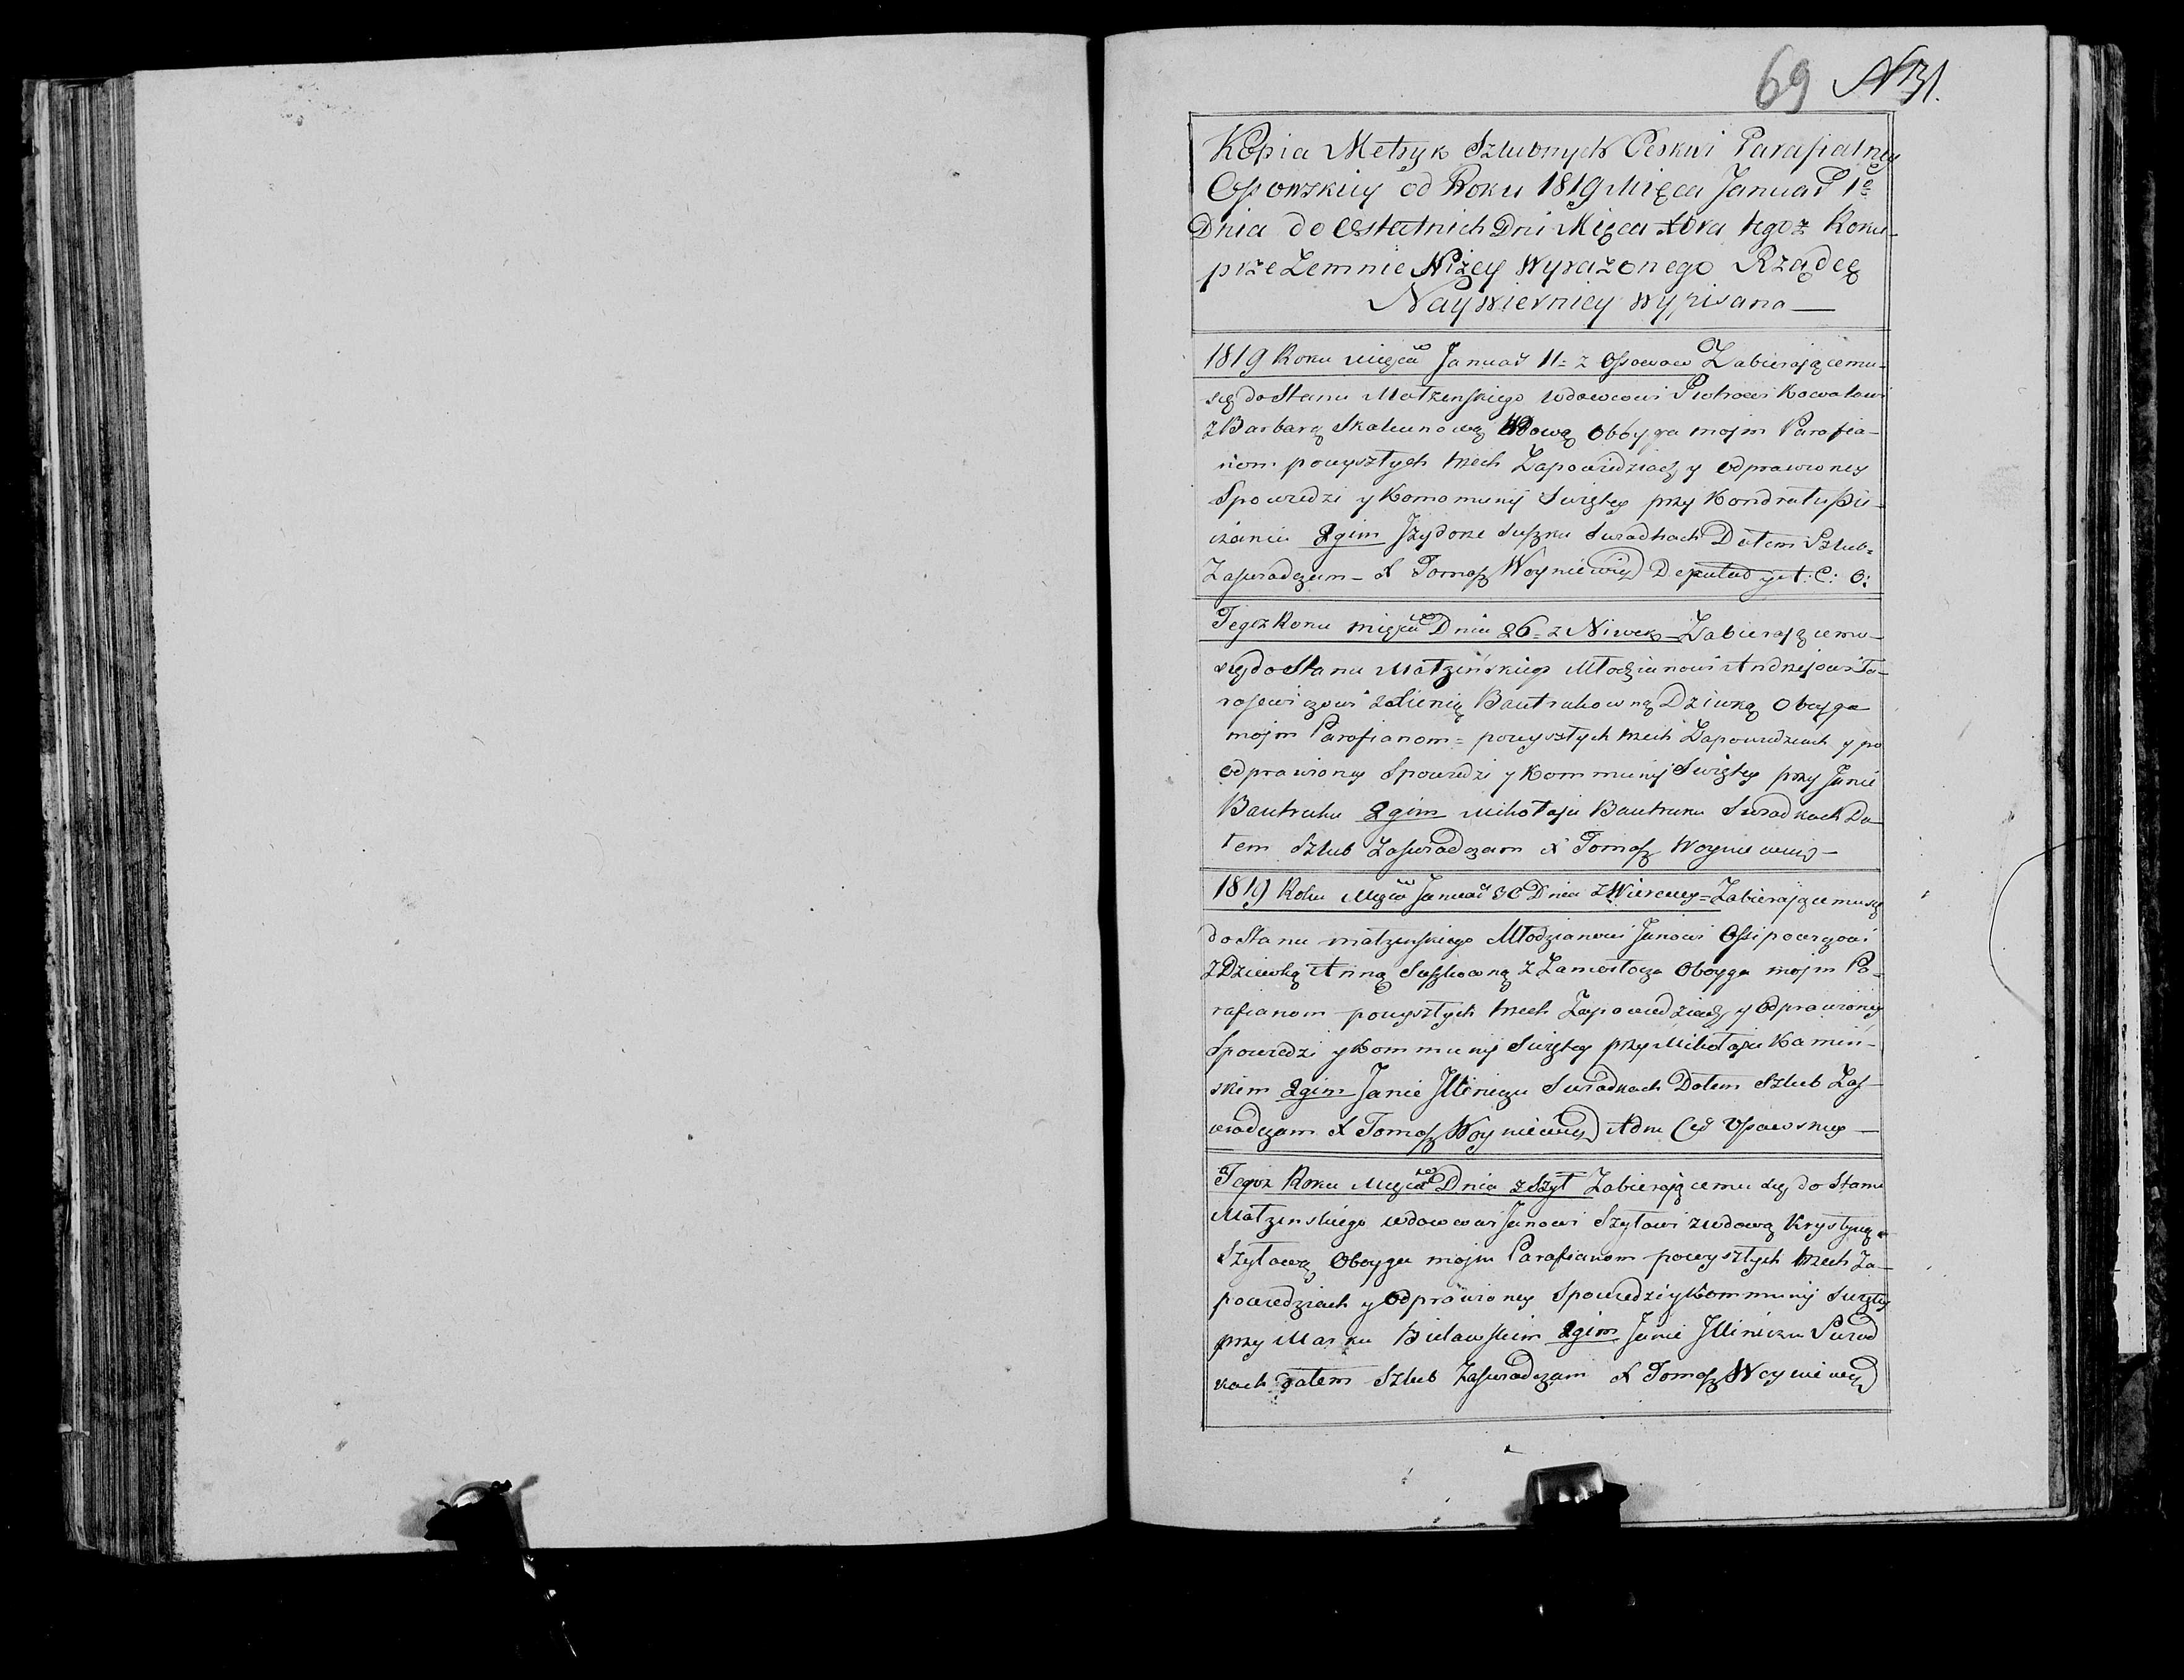 69 N 31.
Kopia Metryk Szlubnych Cerkwi Parafialney
Ossowskiey od Roku 1819 Mięca Januar 1º
Dnia do Ostatnich Dni Mięca Xbra tegoż Roku
przezemnie Niżey Wyrażonego Rządcę
Naywierniey wypisana
1819 Roku Mięca Januar 11 = z Ossowow Zabierającemu
się do Stanu Małżenskiego wdowcowi Piotrowi Kowalowi
z Barbarą Skakunową Wdową Oboyga moim Parafia-
nom po wyszłych trzech Zapowiedziach y odprawioney
Spowiedzi y Komomunij Swiętey przy Kondratu
2gim Jzydorze Suszku Swiadkach Dałem Szlub
Zaswiadczam X Tomasz Woyniewicz C: O:
Tegoż Roku mięca Dnia 26 = z Niwek Zabierającemu
się do Stanu Małżeńskiego Młodzianowi Andrzejowi Ta-
rasewiczowi z Bautrukowną Dziewką Oboyga
moim Parafianom = po wyszłych trzech Zapowiedziach y po
odprawioney Spowiedzi y Kommunij Swiętey przy Janie
Bautruku 2gim Mikołaju Bautruku Swiadkach Da-
łem Szlub Zaswiadczam X Tomasz Woyniewicz
1819 Roku Mięca Januar 30 Dnia z = Zabierającemu się
do Stanu małżenskiego Młodzianowi Janowi Ossipowiczowi
z Dziewką Anną Suszkowną z Zamostocza Oboyga moim Pa-
rafianom po wyszłych trzech Zapowiedziach y Odprawioney
Spowiedzi y Kommunij Swiętey przy Mikołaju Kamin-
skim 2gim Janie Jlliniczu Swiadkach Dałem Szlub Zas-
wiadczam X Tomasz Woyniewicz Adm Ossowskiey
Tegoż Roku Mięca Dnia z Szył Zabierającemu się do Stanu
Małżenskiego wdowcowi Janowi Szyłowi z wdową Krystyną
Szyłową Oboyga moim Parafianom po wyszłych trzech Za-
powiedziach y Odprawioney Spowiedzi y Kommunij Swiętey
przy Marku Bielawskim 2gim Janie Jlliniczu Swiad
kach Dałem Szlub Zaswiadczam X Tomasz Woyniewicz